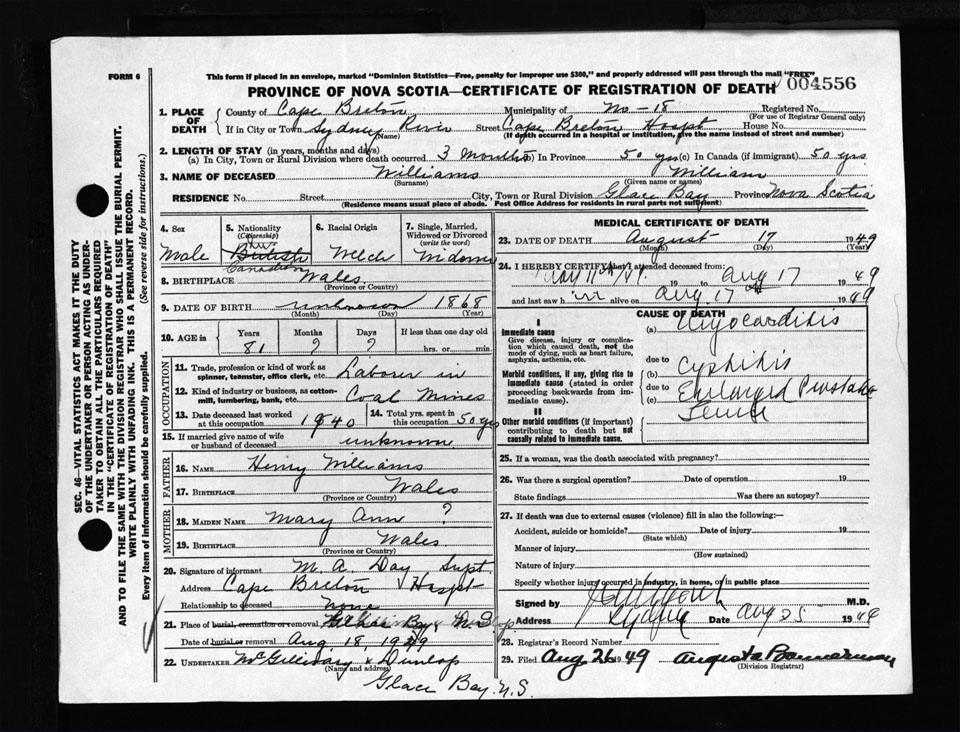 FORM 6
This form if placed in an envelope, marked "Dominion Statistics—Free, penalty for improper use $300," and properly addressed will pass through the mail "FREE"
PROVINCE OF NOVA SCOTIA—CERTIFICATE OF REGISTRATION OF DEATH 004556
1. PLACE OF DEATH County of Cape Breton Municipality of No-18 Registered No.
(For use of Registrar General only)
If in City or Town Sydney River Street Cape Breton Hospt House No.
(Name) (If death occurred in a hospital or institution, give the name instead of street and number)
2. LENGTH OF STAY (in years, months and days)
(a) In City, Town or Rural Division where death occurred 3 months (b) In Province 50 yrs (c) In Canada (if immigrant) 50 yrs
3. NAME OF DECEASED Williams William
(Surname) (Given name or names)
RESIDENCE No. Street City, Town or Rural Division Glace Bay Province Nova Scotia
(Residence means usual place of abode. Post Office Address for residents in rural parts not sufficient)
4. Sex 5. Nationality (Citizenship) 6. Racial Origin 7. Single, Married, Widowed or Divorced (write the word)
Male British Canadian Welch Widower
8. BIRTHPLACE Wales
(Province or Country)
9. DATE OF BIRTH unknown 1868
(Month) (Day) (Year)
10. AGE in Years Months Days If less than one day old
81 ? ? hrs. or min.
OCCUPATION
11. Trade, profession or kind of work as spinner, teamster, office clerk, etc. Labourer in
12. Kind of industry or business, as cotton-mill, lumbering, bank, etc. Coal Mines
13. Date deceased last worked at this occupation 1940 14. Total yrs. spent in this occupation 50 yrs
15. If married give name of wife or husband of deceased unknown
FATHER
16. NAME Henry Williams
17. BIRTHPLACE Wales
(Province or Country)
MOTHER
18. MAIDEN NAME Mary Ann ?
19. BIRTHPLACE Wales
(Province or Country)
20. Signature of informant M. A. Day Supt.
Address Cape Breton Hospt
Relationship to deceased none
21. Place of burial, cremation or removal Bay N.S.
Date of burial or removal Aug 18, 1949
22. UNDERTAKER McGillivary & Dunlop
(Name and address)
Glace Bay. N.S.
MEDICAL CERTIFICATE OF DEATH
23. DATE OF DEATH August 17 1949
(Month) (Day) (Year)
24. I HEREBY CERTIFY that I attended deceased from:
May 11th/49 to Aug 17 1949
and last saw him alive on Aug. 17 1949
CAUSE OF DEATH
I
Immediate cause
Give disease, injury or complication which caused death, not the mode of dying, such as heart failure, asphyxia, asthenia, etc.
(a) Myocarditis
due to
Morbid conditions, if any, giving rise to immediate cause (stated in order proceeding backwards from immediate cause).
(b) Cystitis
due to
(c) Enlarged Prostate
II
Other morbid conditions (if important) contributing to death but not causally related to immediate cause.
25. If a woman, was the death associated with pregnancy?
26. Was there a surgical operation? Date of operation 19
State findings Was there an autopsy?
27. If death was due to external causes (violence) fill in also the following:—
Accident, suicide or homicide? Date of injury 19
(State which)
Manner of injury
(How sustained)
Nature of injury
Specify whether injury occurred in industry, in home, or in public place
Signed by M.D.
Address Sydney Date Aug 25 1949
28. Registrar's Record Number
29. Filed Aug 26 1949 Augusta Bannerman
(Division Registrar)
SEC. 46—VITAL STATISTICS ACT MAKES IT THE DUTY
OF THE UNDERTAKER OR PERSON ACTING AS UNDER-
TAKER TO OBTAIN ALL THE PARTICULARS REQUIRED
IN THE "CERTIFICATE OF REGISTRATION OF DEATH"
AND TO FILE THE SAME WITH THE DIVISION REGISTRAR WHO SHALL ISSUE THE BURIAL PERMIT.
WRITE PLAINLY WITH UNFADING INK. THIS IS A PERMANENT RECORD.
Every item of information should be carefully supplied. (See reverse side for instructions.)